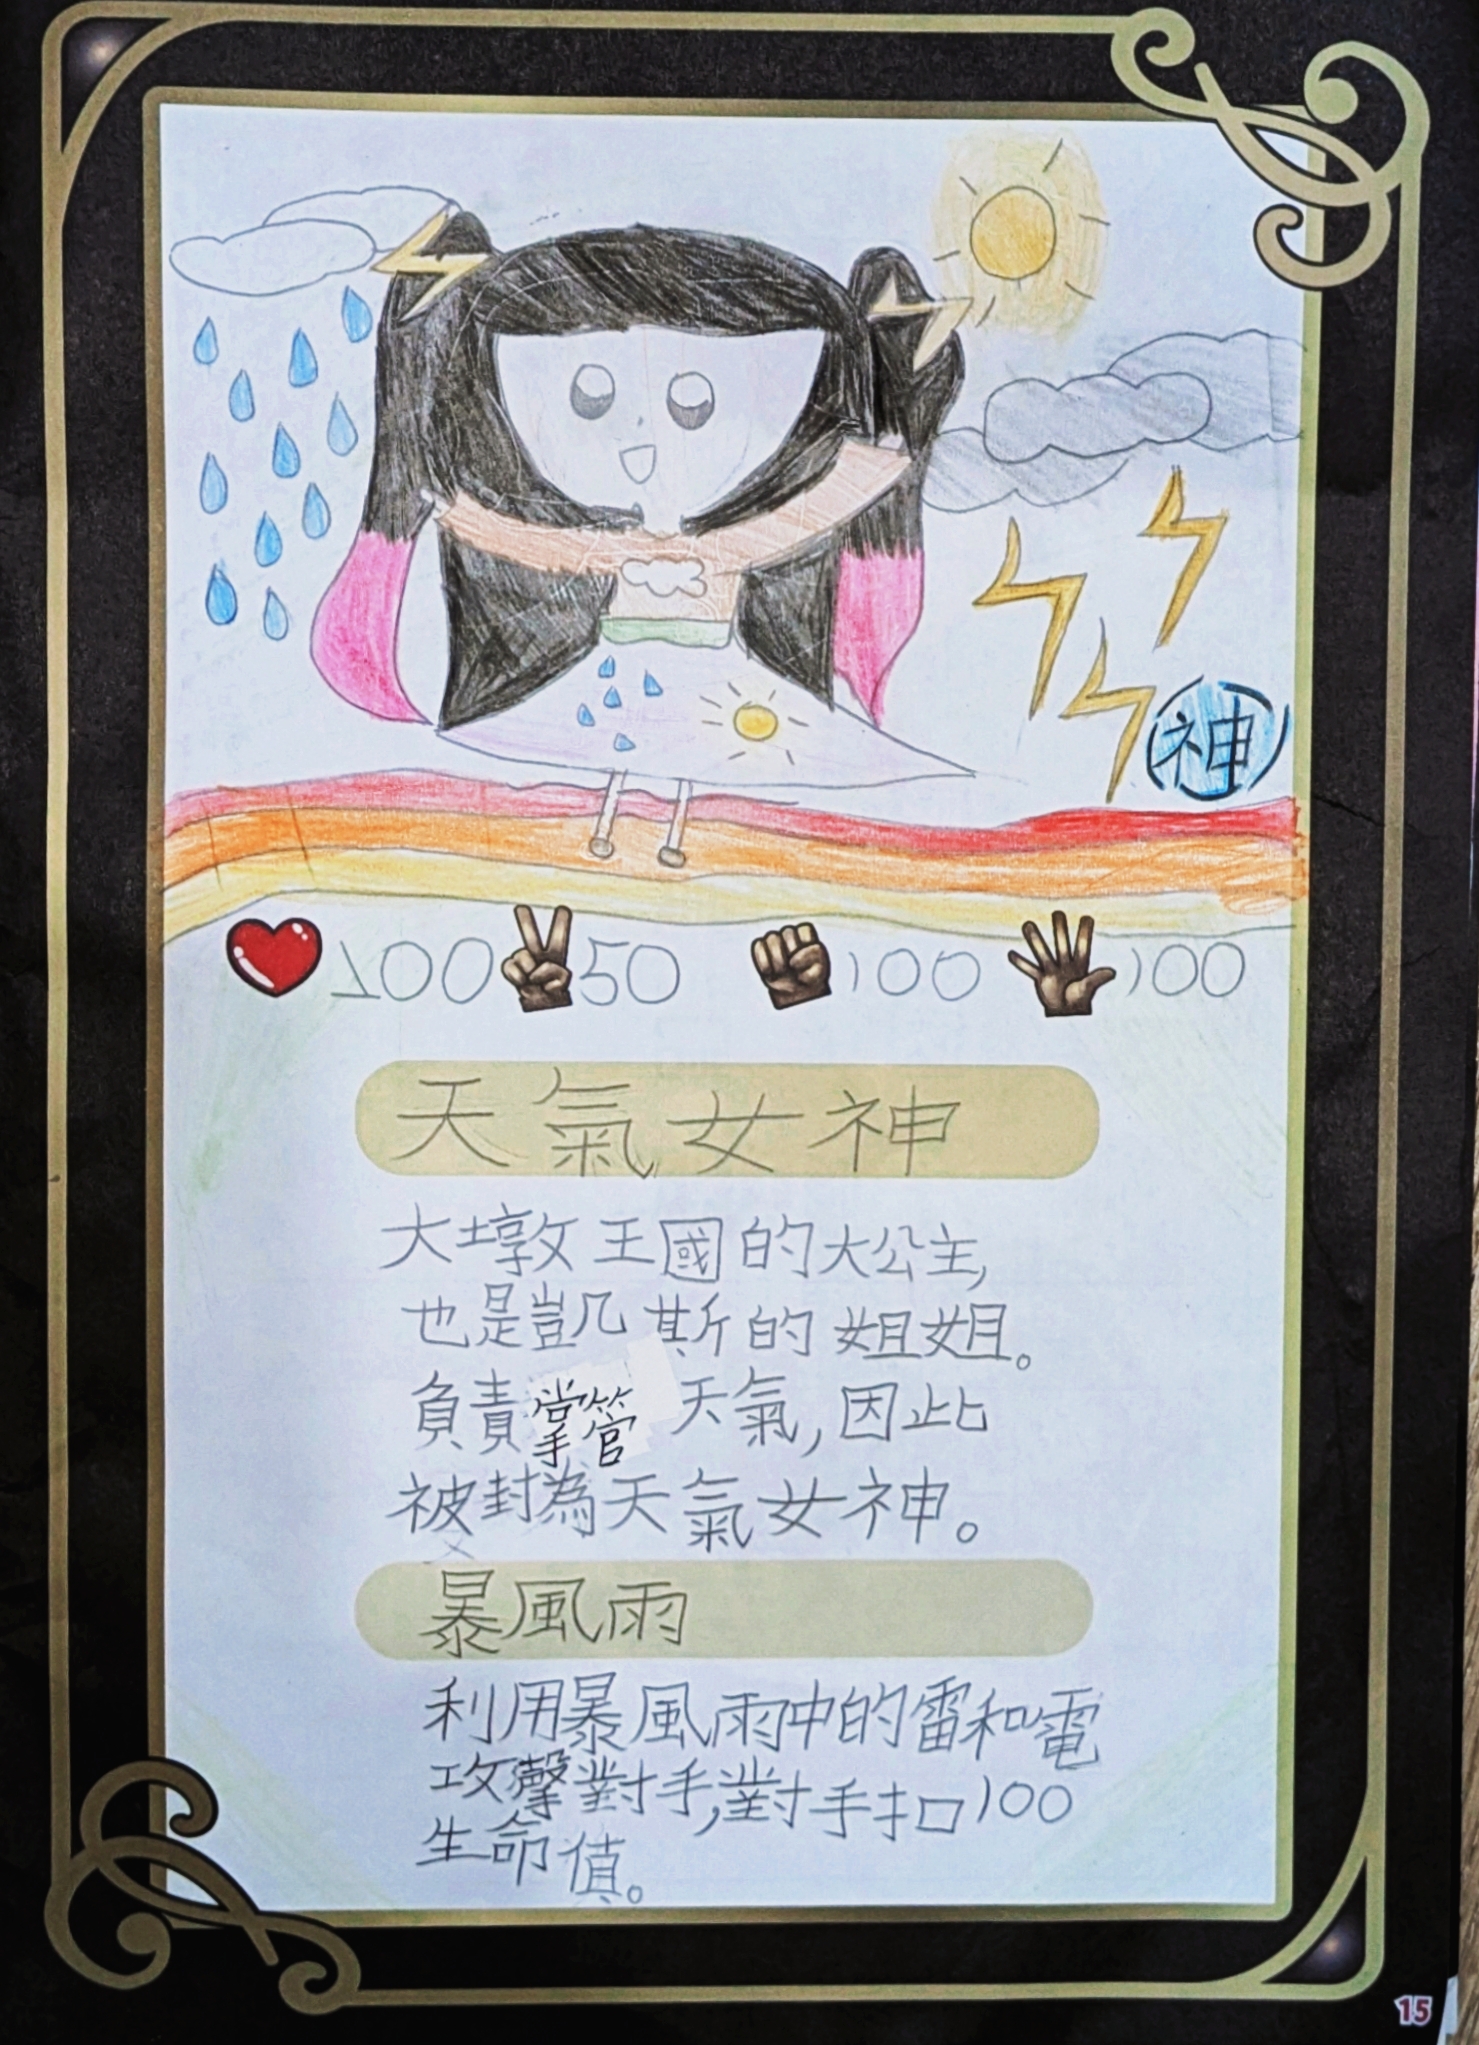 神
200 50 100 100
天氣女神
大墩王國的大公主,
也是凱斯的姐姐。
負責掌管天氣,因此
被封為天氣女神。
暴風雨
利用暴風雨中的雷和電
攻擊對手,對手扣100
生命值。
15